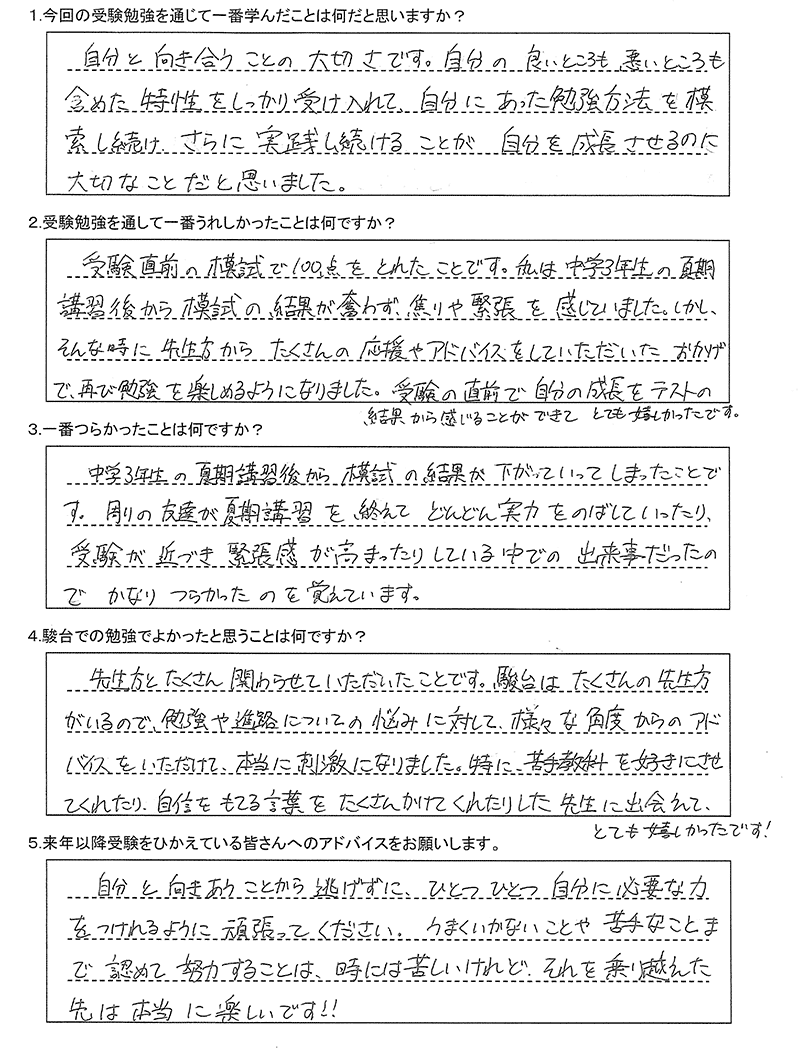 1.今回の受験勉強を通じて一番学んだことは何だと思いますか？
自分と向き合うことの大切さです。自分の良いところも悪いところも
含めた特性をしっかり受け入れて、自分にあった勉強方法を模
索し続け、さらに実践し続けることが自分を成長させるのに
大切なことだと思いました。
2.受験勉強を通して一番うれしかったことは何ですか？
受験直前の模試で100点をとれたことです。私は中学3年生の夏期
講習後から模試の結果が奮わず、焦りや緊張を感じていました。しかし、
そんな時に先生方からたくさんの応援やアドバイスをしていただいたおかげ
で、再び勉強を楽しめるようになりました。受験の直前で自分の成長をテストの
結果から感じることができてとても嬉しかったです。
3.一番つらかったことは何ですか？
中学3年生の夏期講習後から模試の結果が下がっていってしまったことで
す。周りの友達が夏期講習を終えてどんどん実力をのばしていったり、
受験が近づき緊張感が高まったりしている中での出来事だったの
でかなりつらかったのを覚えています。
4.駿台での勉強でよかったと思うことは何ですか？
先生方とたくさん関わらせていただいたことです。駿台はたくさんの先生方
がいるので、勉強や進路についての悩みに対して、様々な角度からのアド
バイスをいただけて、本当に刺激になりました。特に苦手教科を好きにさせ
てくれたり、自信をもてる言葉をたくさんかけてくれたりした先生に出会えて、
とても嬉しかったです!
5.来年以降受験をひかえている皆さんへのアドバイスをお願いします。
自分と向きあうことから逃げずに、ひとつひとつ自分に必要な力
をつけれるように頑張ってください。うまくいかないことや苦手なことま
で認めて努力することは、時には苦しいけれど、それを乗り越えた
先は本当に楽しいです!!